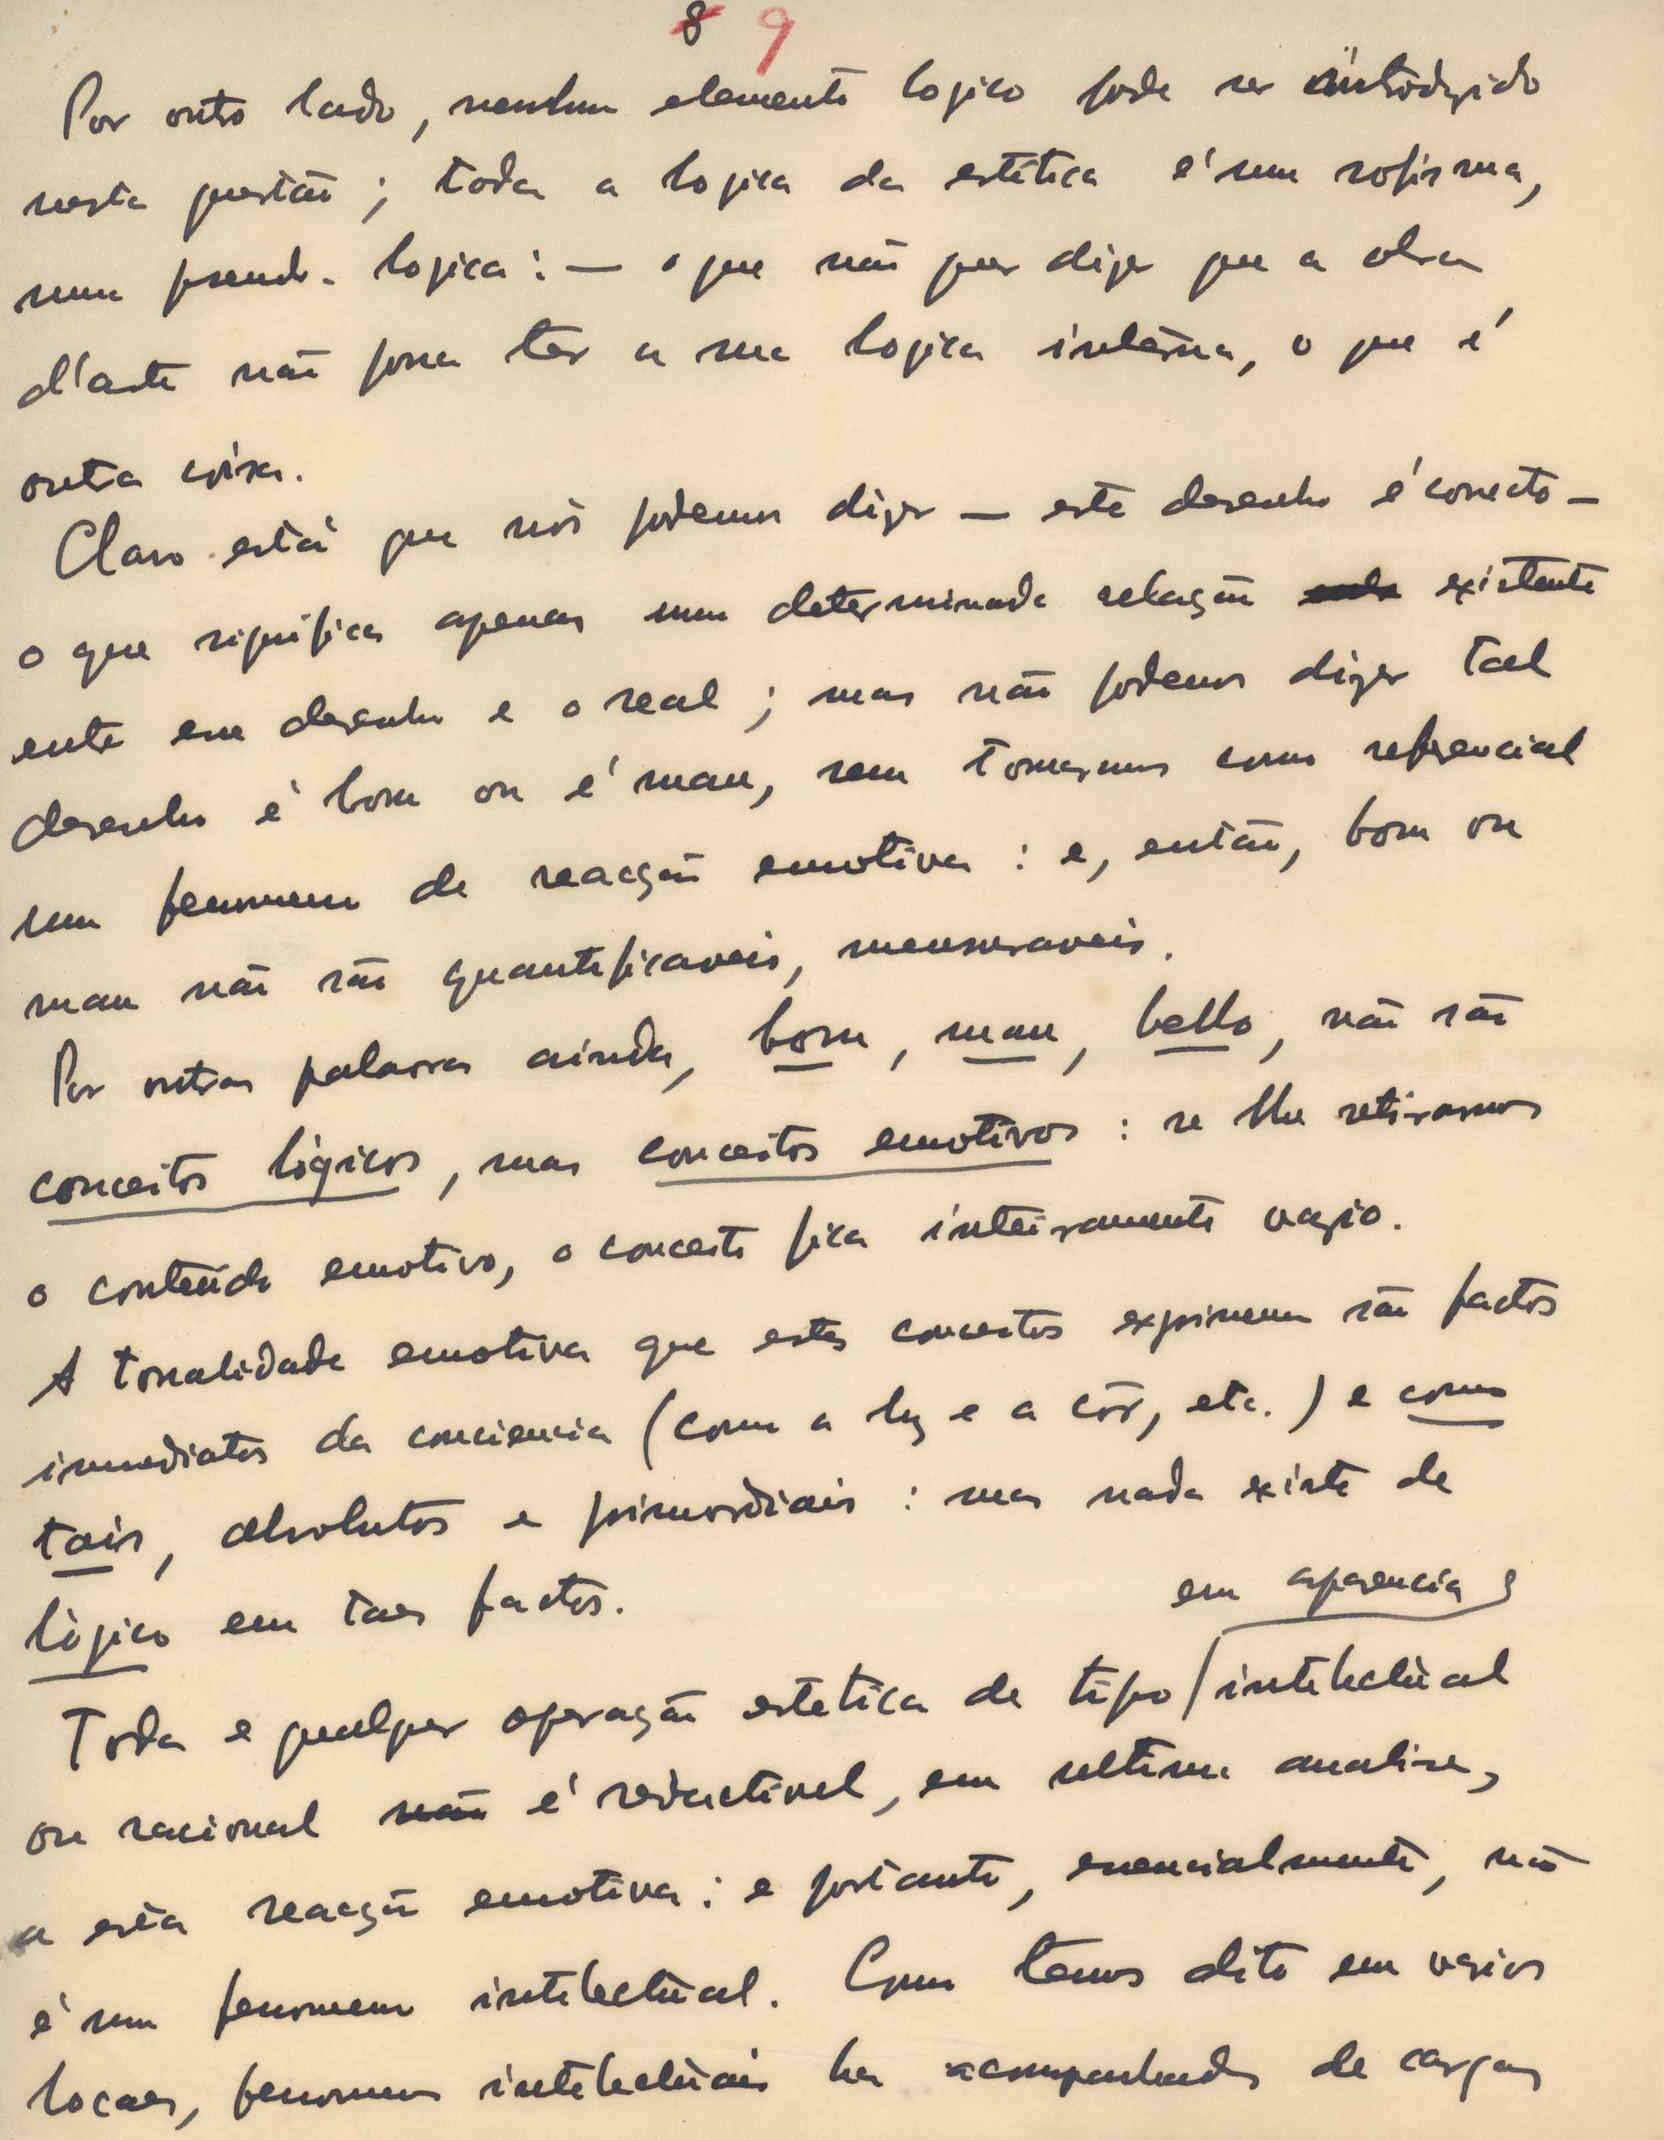 8 9
Por outro lado, nenhum elemento logico pode ser introduzido
nesta questão; toda a logica da estética é um sofisma,
uma pseudo-logica: — o que não quer dizer que a obra
d'arte não possa ter a sua logica interna, o que é
outra coisa.
Claro está que nós podemos dizer — este desenho é correcto —
o que significa apenas uma determinada relação existente
entre esse desenho e o real; mas não podemos dizer tal
desenho é bom ou é mau, sem tomarmos como referencial
um fenomeno de reacção emotiva: e, então, bom ou
mau não são quantificaveis, mensuraveis.
Por outras palavras ainda, bom, mau, bello, não são
conceitos lógicos, mas conceitos emotivos: se lhe retirarmos
o conteúdo emotivo, o conceito fica inteiramente vazio.
A tonalidade emotiva que estes conceitos exprimem são factos
immediatos da consciencia (como a luz e a côr, etc.) e como
tais, absolutos e primordiais: mas nada existe de
lógico em taes factos.
em aparencia
Toda e qualquer operação estetica de tipo intelectual
ou racional não é reductivel, em ultima analise,
a esta reacção emotiva: e portanto, essencialmente, não
é um fenomeno intelectual. Como temos dito em varios
locaes, fenomenos intelectuais ha acompanhados de cargas